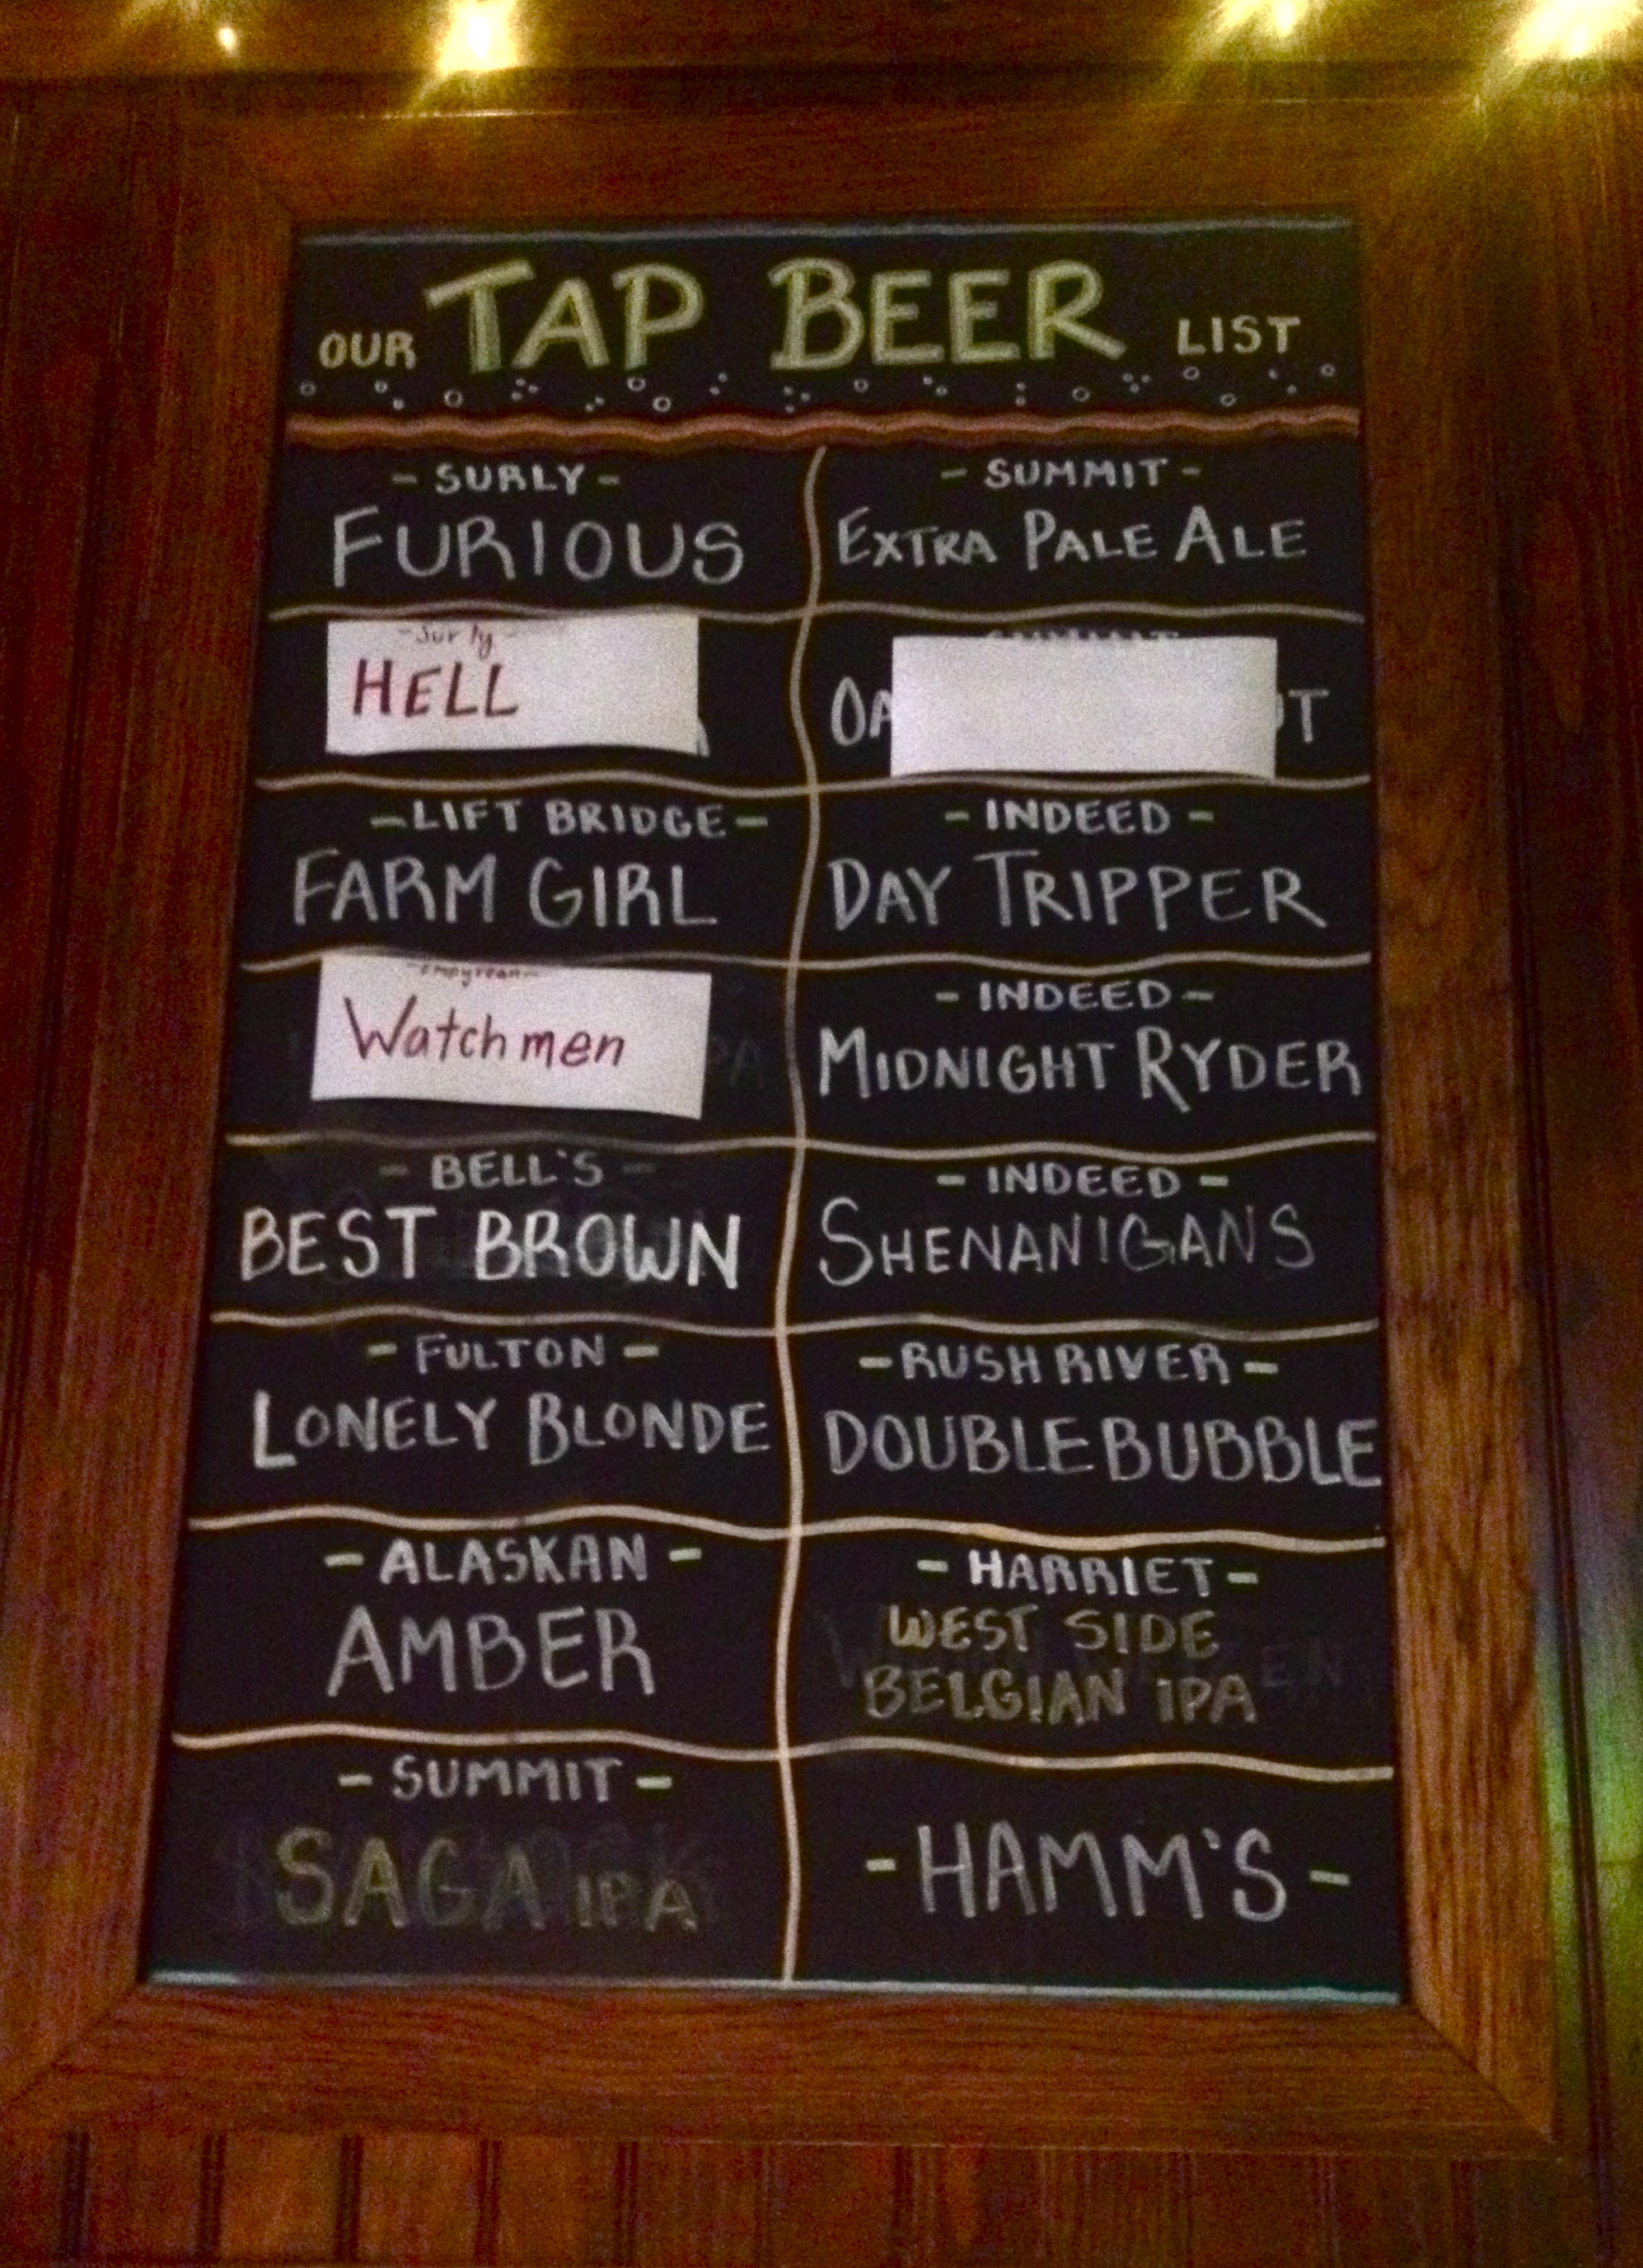 OUR TAP BEER LIST
- SURLY -
FURIOUS
- Surly -
HELL
- LIFT BRIDGE -
FARM GIRL
- Empyrean -
Watchmen
- BELL'S -
BEST BROWN
- FULTON -
LONELY BLONDE
- ALASKAN -
AMBER
- SUMMIT -
SAGA IPA
- SUMMIT -
EXTRA PALE ALE
- INDEED -
DAY TRIPPER
- INDEED -
MIDNIGHT RYDER
- INDEED -
SHENANIGANS
- RUSH RIVER -
DOUBLE BUBBLE
- HARRIET -
WEST SIDE
BELGIAN IPA
- HAMM'S -